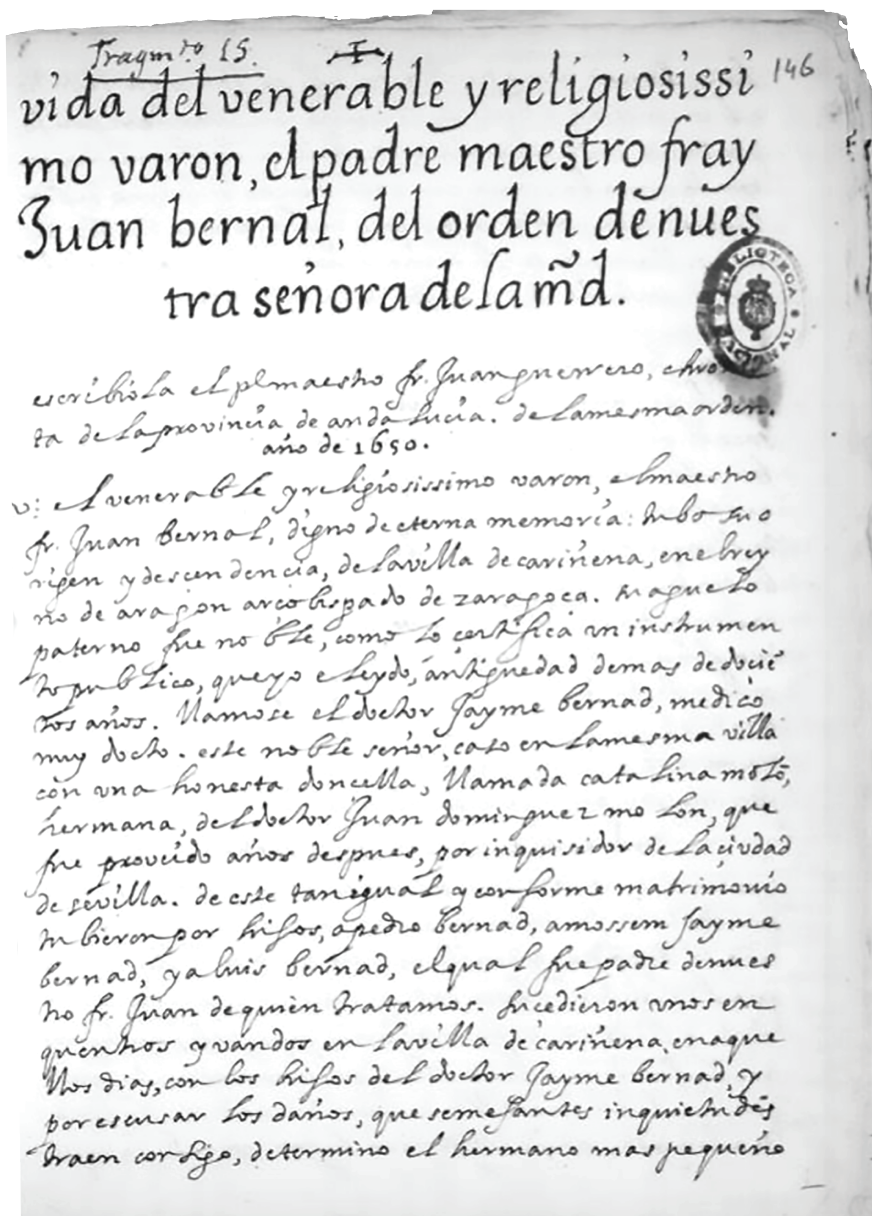 Fragm.to 15.
146
vida del venerable y religiosissi
mo varon, el padre maestro fray
Juan bernal, del orden de nues
tra señora de la m̃d.
BIBLIOTECA NACIONAL
escribiola el pe maestro fr. Juan guerrero, chro
ta de la provincia de andalucia. de la mesma orden.
año de 1650.
el venerable y religiosissimo varon, el maestro
fr. Juan bernal, digno de eterna memoria: tubo su o
rigen y descendencia, de la villa de cariñena, en el rey
no de aragon arçobispado de zaragoça. su aguelo
paterno fue noble, como lo certifica un instrumen
to publico, que yo e leydo, antiguedad de mas de dociẽ
tos años. llamose el doctor Jayme bernad, medico
muy docto. este noble señor, caso en la mesma villa
con una honesta doncella, llamada catalina molõ,
hermana, del doctor Juan dominguez molon, que
fue proveido años despues, por inquisidor de la ciudad
de sevilla. de este tan igual y conforme matrimonio
tubieron por hijos, a pedro bernad, a mossem Jayme
bernad, y a luis bernad, el qual fue padre de nues
tro fr. Juan de quien tratamos. sucedieron unos en
quentros y vandos en la villa de cariñena, en aque
llos dias, con los hijos del doctor Jayme bernad, y
por escusar los daños, que semejantes inquietudes
traen consigo, determino el hermano mas pequeño